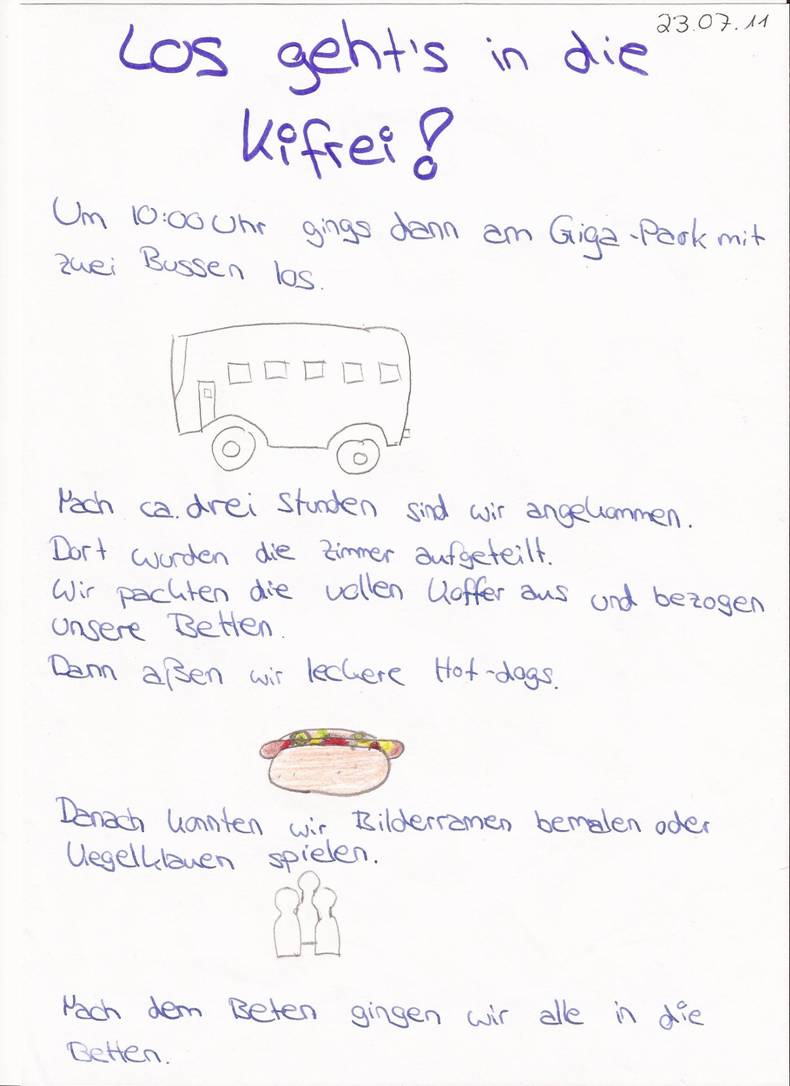 23.07.11
Los geht's in die
Kifrei!
Um 10:00 Uhr gings dann am Giga-Park mit
zwei Bussen los.
Nach ca. drei Stunden sind wir angekommen.
Dort wurden die Zimmer aufgeteilt.
Wir packten die vollen Koffer aus und bezogen
unsere Betten.
Dann aßen wir leckere Hot-dogs.
Danach konnten wir Bilderramen bemalen oder
Kegelklauen spielen.
Nach dem Beten gingen wir alle in die
Betten.